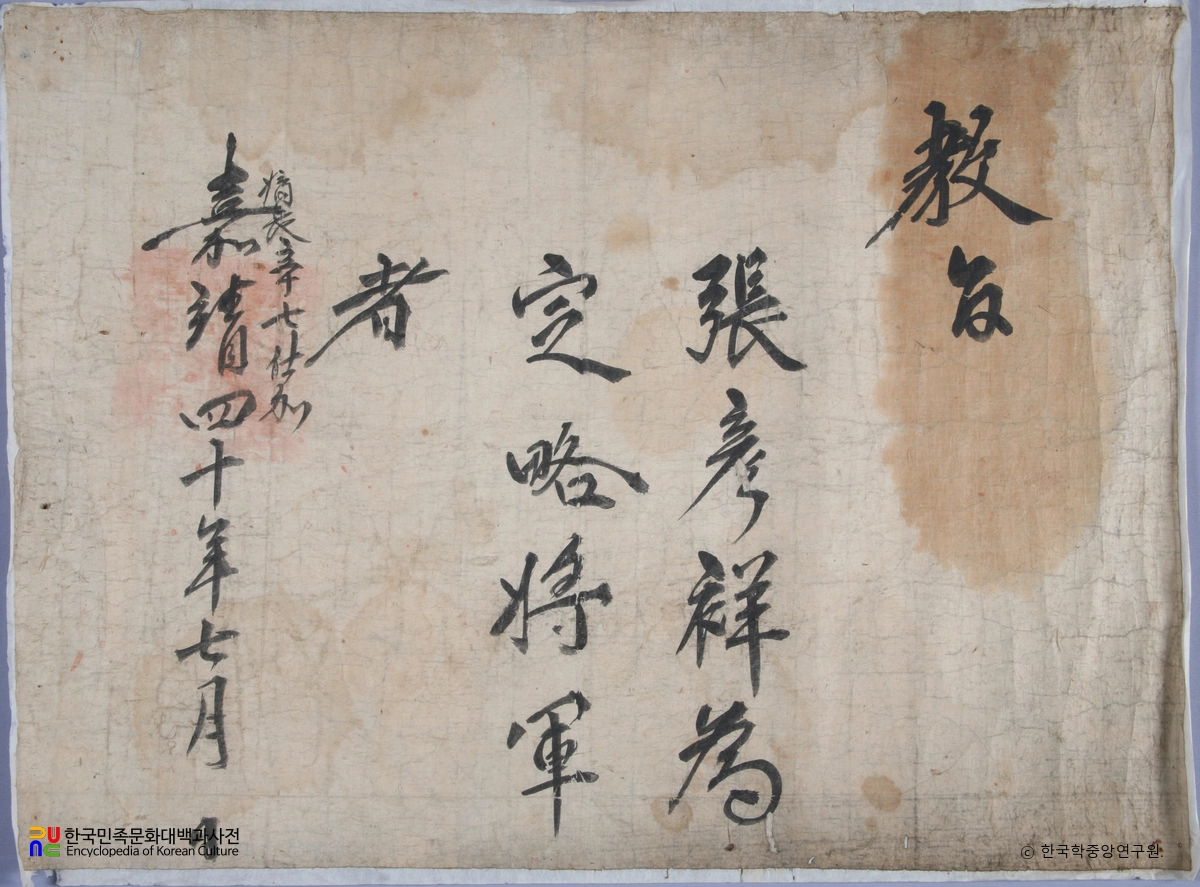 教旨
張彦祥為
定略將軍
者
長
七仕加
嘉靖四十年七月
한국민족문화대백과사전
Encyclopedia of Korean Culture
ⓒ 한국학중앙연구원.